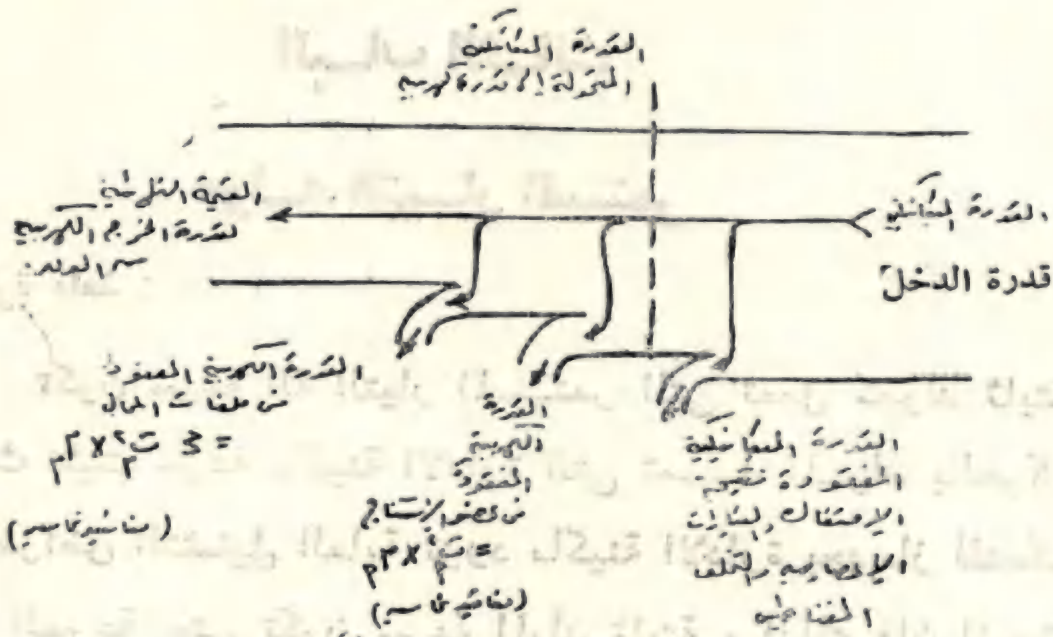 القدرة الميكانيكية
المتحولة إلى قدرة كهربية
القدرة الميكانيكية
قدرة الدخل
القيمة
لقدرة الخرج الكهربية
من المولد
القدرة الكهربية المفقودة
في ملفات المجال
(مفاقيد نحاسية)
القدرة
الكهربية
المفقودة
في عضو الإستنتاج
(مفاقيد نحاسية)
القدرة الميكانيكية
المفقودة نتيجة
الإحتكاك والتيارات
الإعصارية والتخلف
المغناطيسي